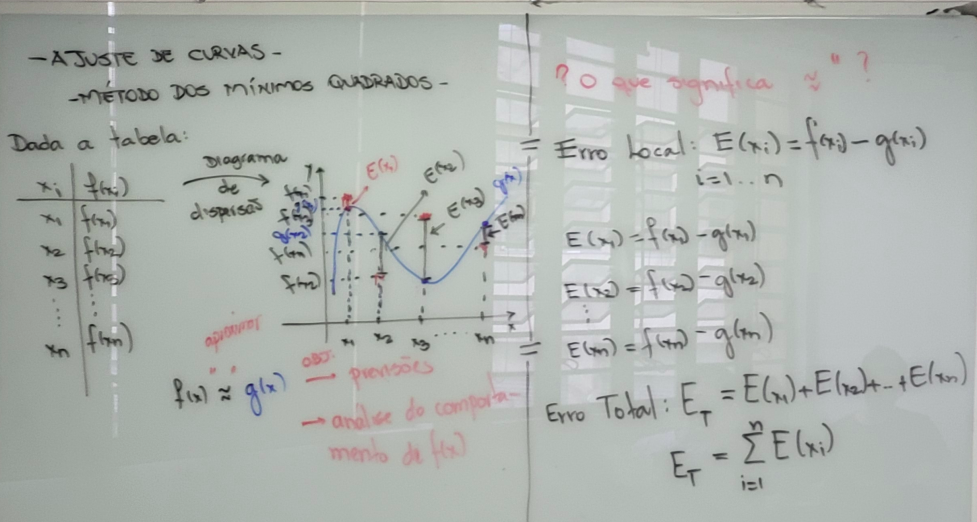 - AJUSTE DE CURVAS -
- MÉTODO DOS MÍNIMOS QUADRADOS -
Dada a tabela:
xi f(xi)
x1 f(x1)
x2 f(x2)
x3 f(x3)
⋮ ⋮
xn f(xn)
Diagrama
de
dispersão
y
f(x1)
f(x3)
g(x2)
f(xn)
f(x2)
E(x1)
E(x2)
E(x3)
E(xn)
g(x)
x1 x2 x3 ..... xn x
aproximar
" "
f(x) ≈ g(x)
OBJ:
→ previsões
→ análise do comporta-
mento de f(x)
? O que significa ≈ " ?
= Erro Local: E(xi) = f(xi) - g(xi)
i=1...n
E(x1) = f(x1) - g(x1)
E(x2) = f(x2) - g(x2)
⋮
= E(xn) = f(xn) - g(xn)
Erro Total: ET = E(x1)+E(x2)+...+E(xn)
ET = n∑i=1 E(xi)